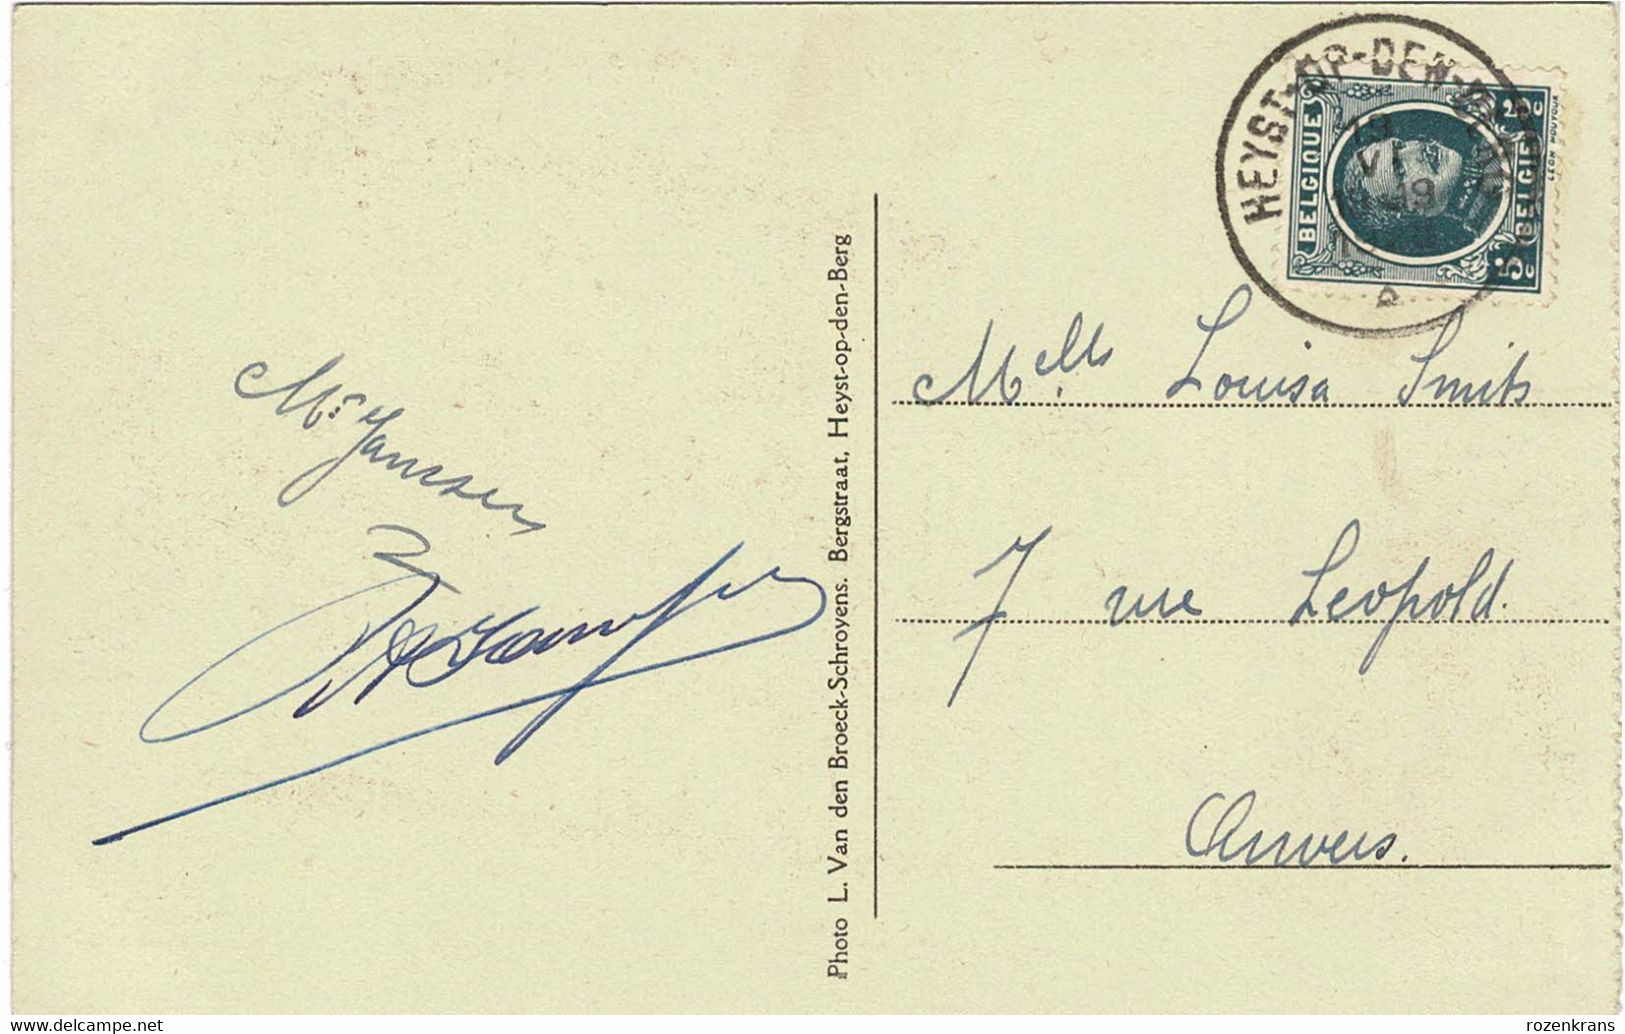 HEYST-OP-DEN-BERG
BELGIQUE
BELGIË
5 c
LÉON HOUYOUX
VI
Mr Janssen
Melle Louisa Smits
7 rue Leopold.
Anvers.
Photo L. Van den Broeck-Schroyens. Bergstraat, Heyst-op-den-Berg
www.delcampe.net
rozenkrans